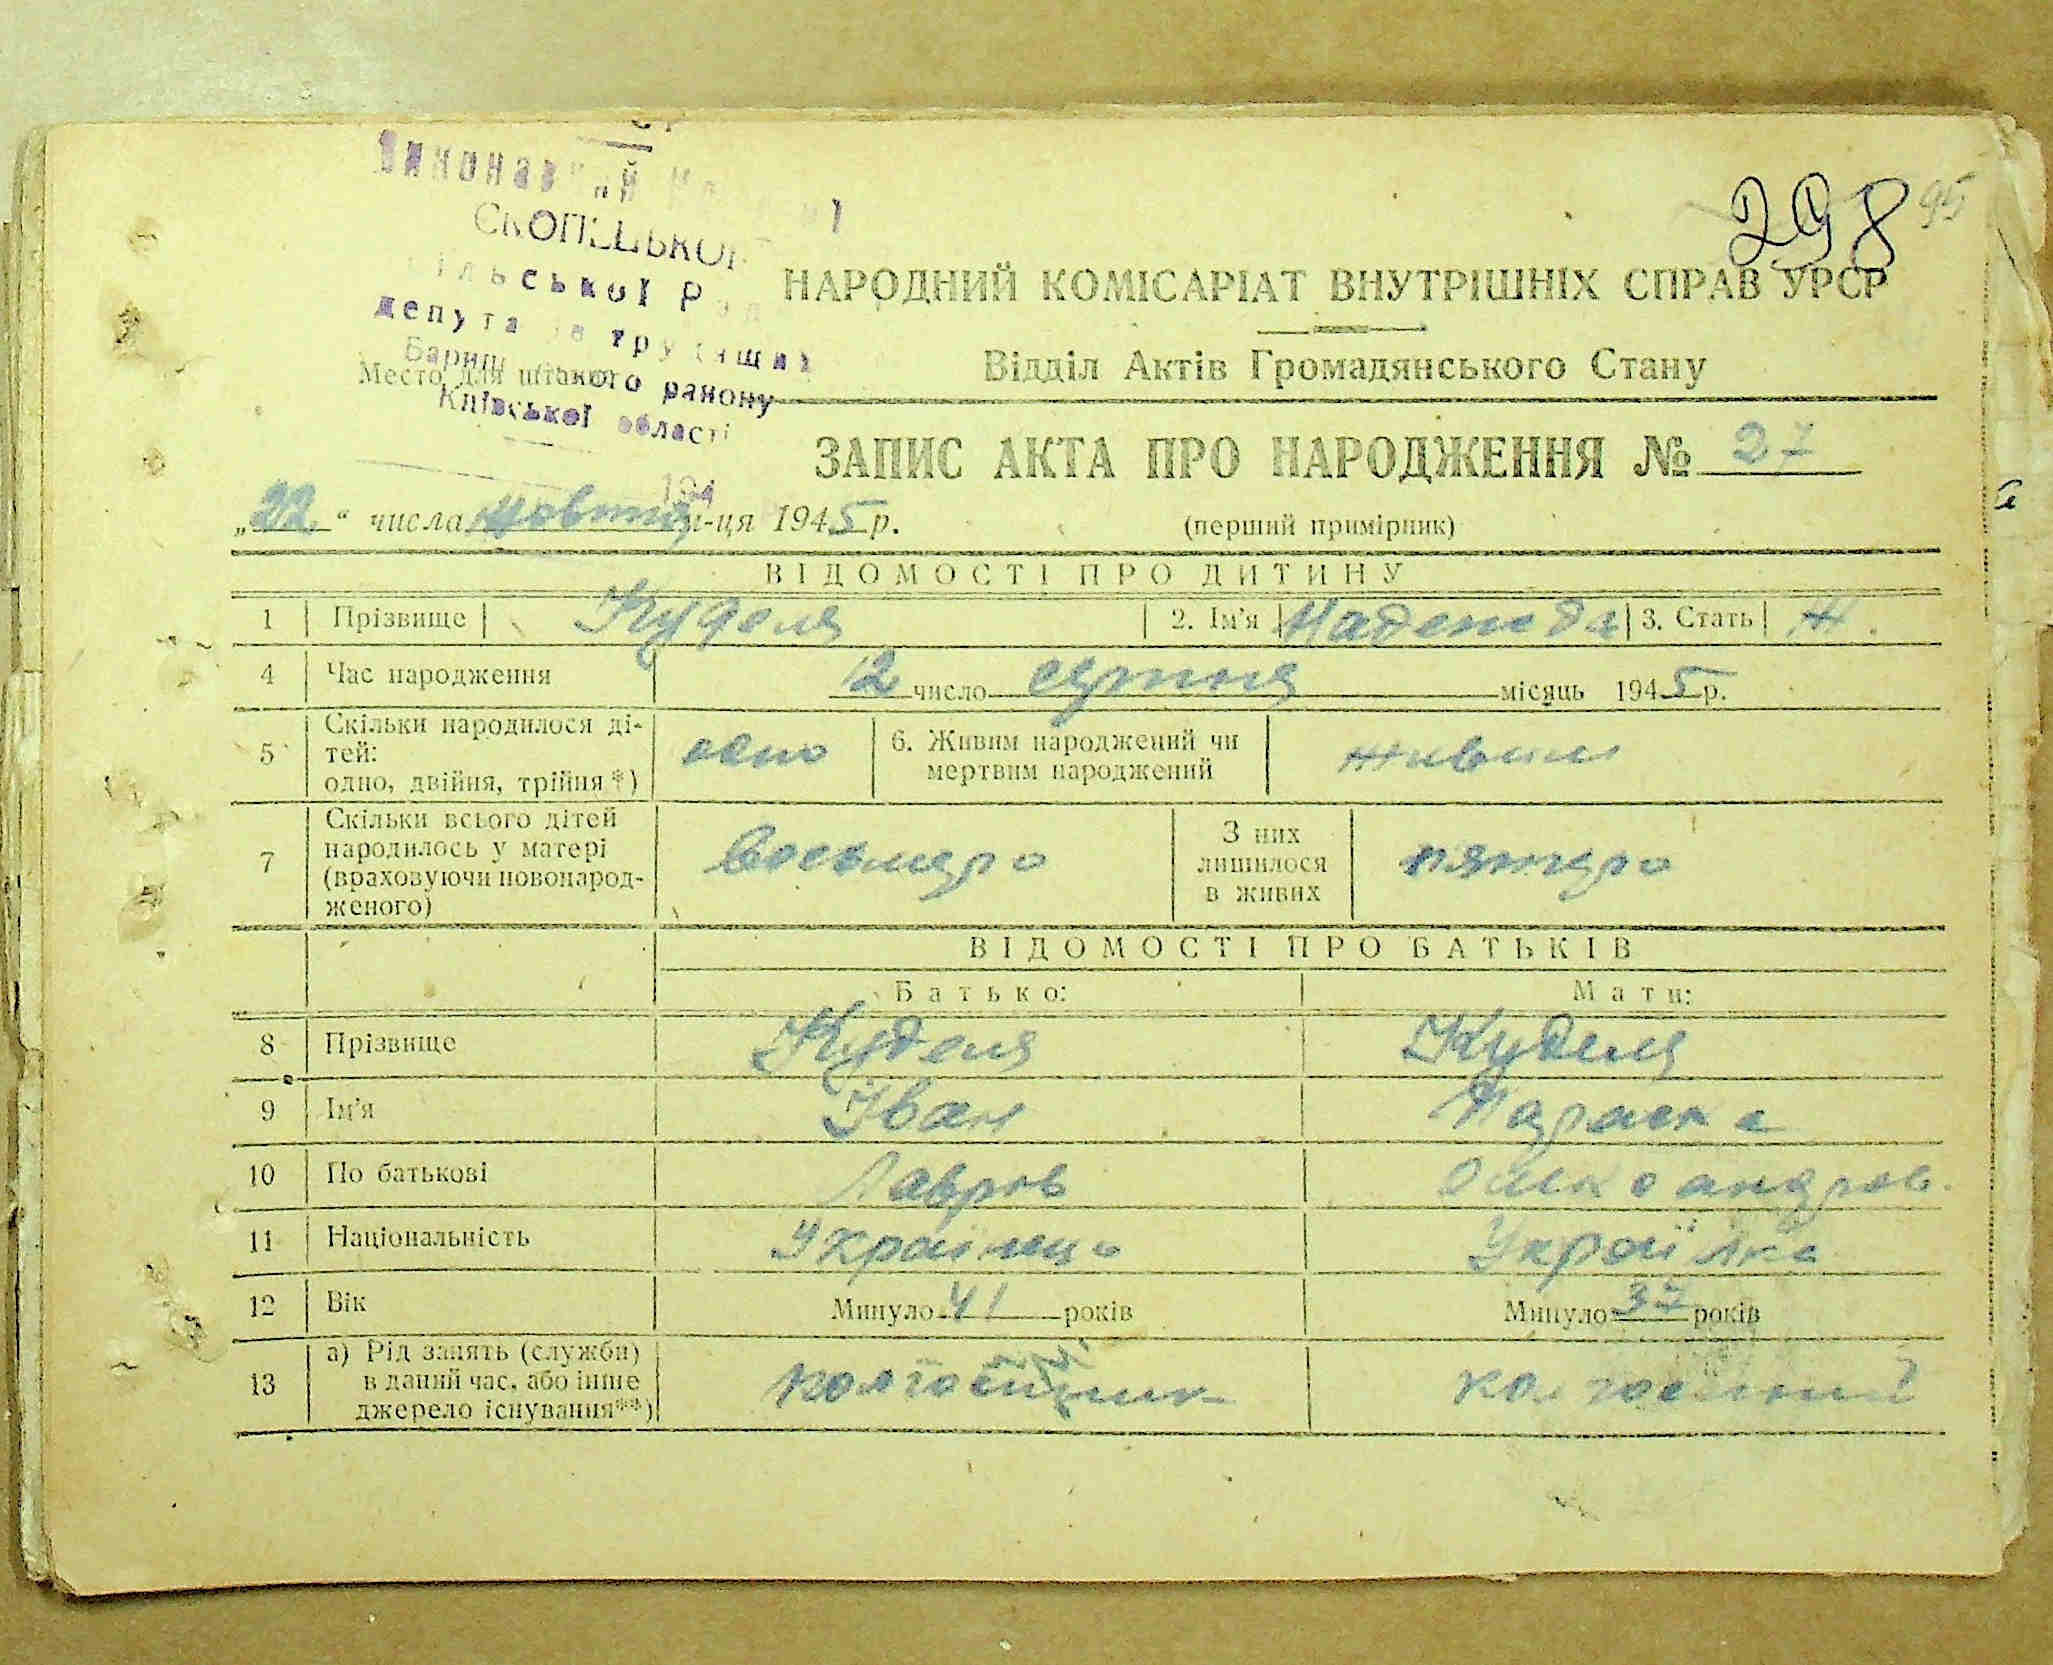 298 95
Виконавчий
СКОПЕЦЬКОЇ
сільської Рад
депутатів трудящих
Баришівського району
Київської області
Место для штампа
194
НАРОДНИЙ КОМІСАРІАТ ВНУТРІШНІХ СПРАВ УРСР
Відділ Актів Громадянського Стану
ЗАПИС АКТА ПРО НАРОДЖЕННЯ № 27
„22“ числа жовтня м-ця 1945 р. (перший примірник)
ВІДОМОСТІ ПРО ДИТИНУ
1 Прізвище Куделя 2. Ім'я 3. Стать Ж.
4 Час народження 12 число серпня місяць 1945 р.
5 Скільки народилося ді-
тей:
одно, двійня, трійня *) одно
6. Живим народжений чи
мертвим народжений живим
7 Скільки всього дітей
народилось у матері
(враховуючи новонарод-
женого) восьмеро
З них
лишилося
в живих пятеро
ВІДОМОСТІ ПРО БАТЬКІВ
Батько: Мати:
8 Прізвище Куделя Куделя
9 Ім'я Іван Параска
10 По батькові Лавров Олександров.
11 Національність Українець Українка
12 Вік Минуло 41 років Минуло 37 років
13 а) Рід занять (служби)
в даний час, або інше
джерело існування**)